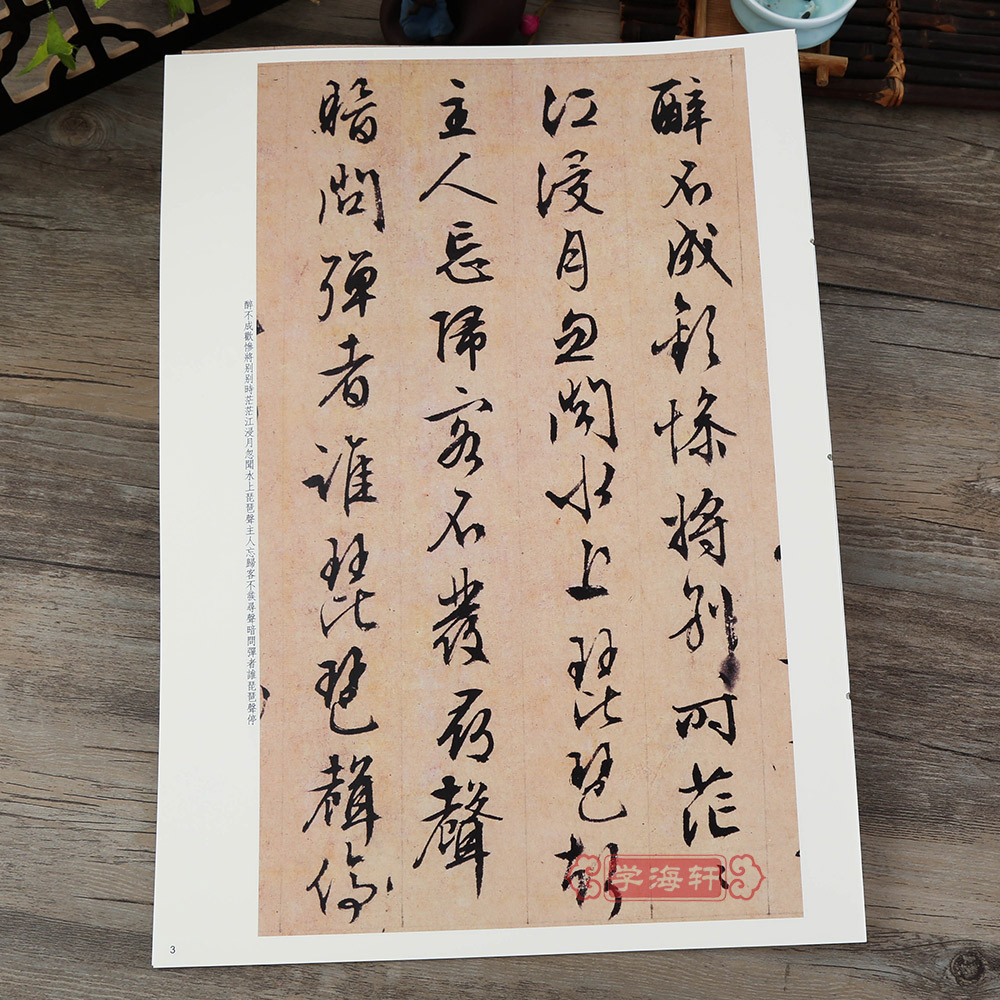 醉不成歡慘將别〻時茫〻
江浸月忽聞水上琵琶聲
主人忘歸客不發尋聲
暗問彈者誰琵琶聲停
醉不成歡慘將别别時茫茫江浸月忽聞水上琵琶聲主人忘歸客不發尋聲暗問彈者誰琵琶聲停
学海轩
3